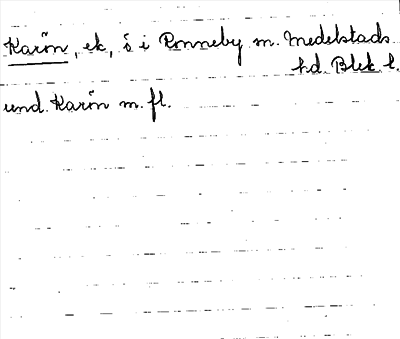 Karön, ek, ö i Ronneby m. Medelstads
hd. Blek. l.
und. Karön m. fl.